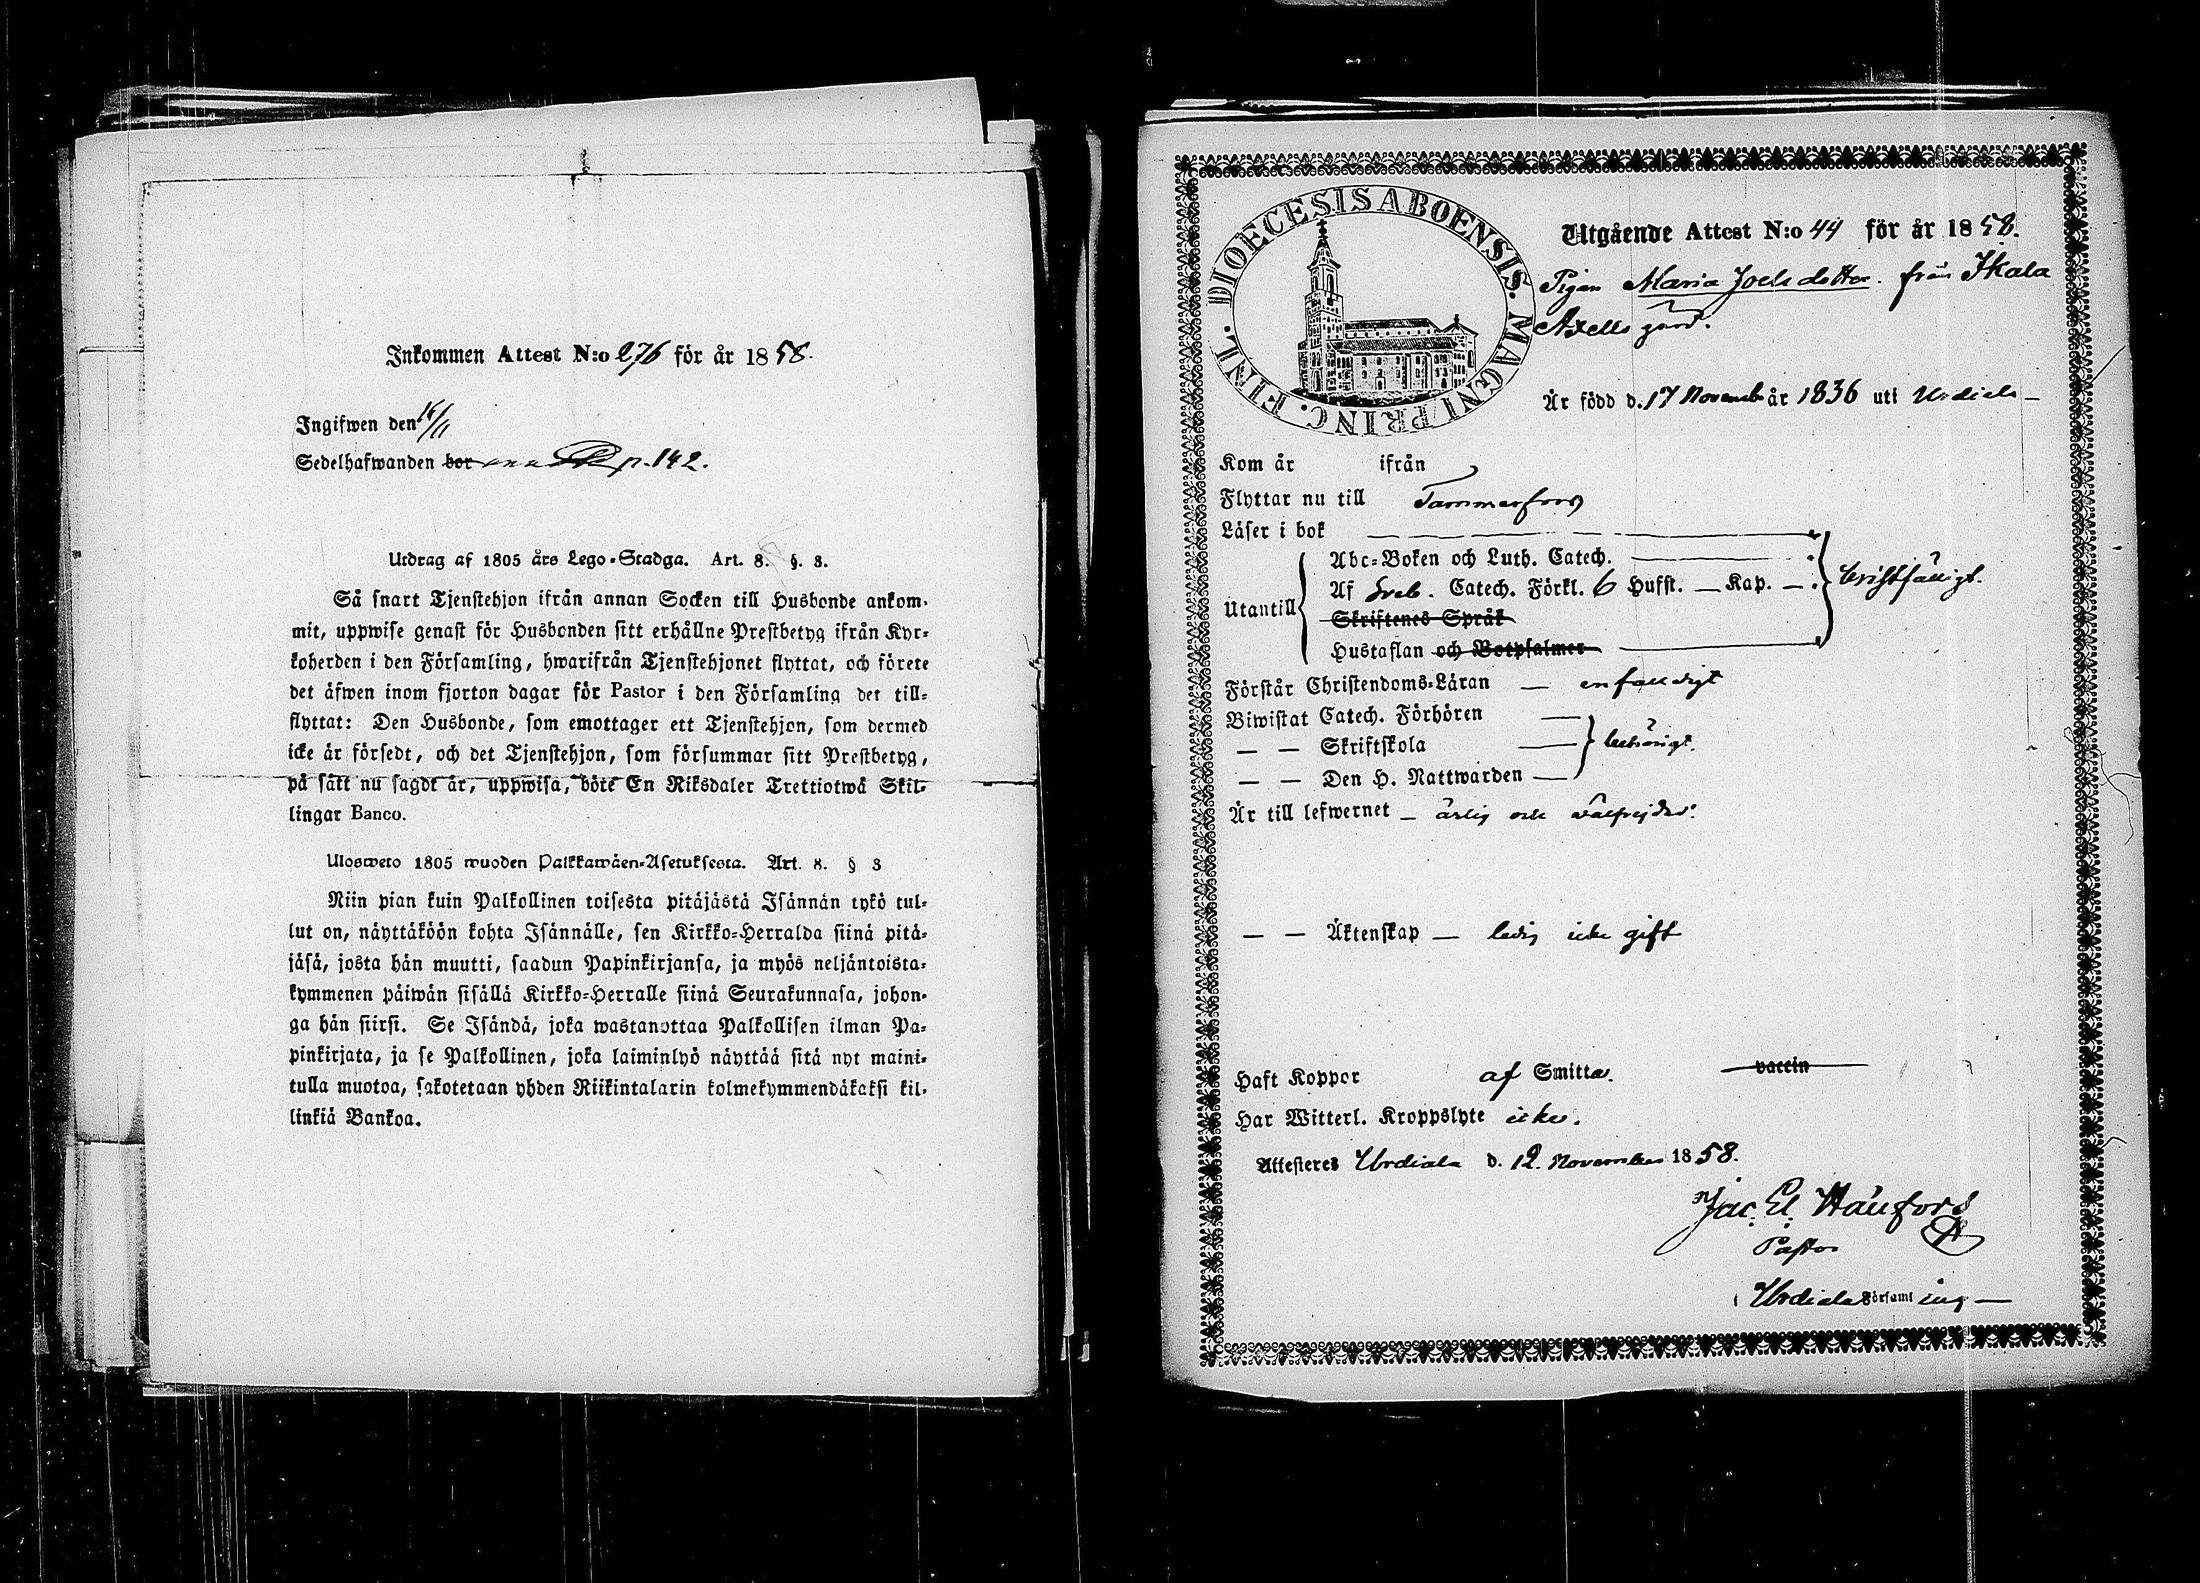 Inkommen Attest N:o 276 för år 1858.
Ingifwen den 16/11
Sedelhafwanden bor p. 142.
Utdrag af 1805 års Lego-Stadga. Art. 8. §. 8.
Så snart Tjenstehjon ifrån annan Socken till Husbonde ankom-
mit, uppwise genast för Husbonden sitt erhållne Prestbetyg ifrån Kyr-
koherden i den Församling, hwarifrån Tjenstehjonet flyttat, och förete
det äfwen inom fjorton dagar för Pastor i den Församling det till-
flyttat: Den Husbonde, som emottager ett Tjenstehjon, som dermed
icke är försedt, och det Tjenstehjon, som försummar sitt Prestbetyg,
på sätt nu sagdt är, uppwisa, böte En Riksdaler Trettiotwå Skil-
lingar Banco.
Ulosweto 1805 wuoden Palkkawäen-Asetuksesta. Art. 8. § 8
Niin pian kuin Palkollinen toisesta pitäjästä Isännän tykö tul-
lut on, näyttäköön kohta Isännälle, sen Kirkko-Herralda siinä pitä-
jäsä, josta hän muutti, saadun Papinkirjansa, ja myös neljäntoista-
kymmenen päiwän sisällä Kirkko-Herralle siinä Seurakunnasa, johon-
ga hän siirsi. Se Isändä, joka wastanottaa Palkollisen ilman Pa-
pinkirjata, ja se Palkollinen, joka laiminlyö näyttää sitä nyt maini-
tulla muotoa, sakotetaan yhden Riikintalarin kolmekymmendäkaksi kil-
linkiä Bankoa.
DIOECESIS ABOENSIS. MAGNI PRINC. FINL.
Utgående Attest N:o 44 för år 1858.
Pigan Maria Joelsdotter. från Ikala
Axells gård.
Är född d. 17 Novemb år 1836 uti Urdiala
Kom år ifrån
Flyttar nu till Tammerfors
Läser i bok
Utantill
Abc-Boken och Luth. Catech.
Af Sveb. Catech. Förkl. 6 Hufst. — Kap. —
Skriftenes Språk
Hustaflan och Botpsalmer
bristfälligt.
Förstår Christendoms-Läran — enfaldigt
Biwistat Catech. Förhören
— — Skriftskola
— — Den H. Nattwarden
behörigt.
Är till lefwernet — ärlig och välfrejdad.
— — Äktenskap — ledig icke gift
Haft Koppor af Smitta. vaccin
Har Witterl. Kroppslyte icke.
Attesteres Urdiala d. 12. November 1858.
Pastor
i Urdiala Församling